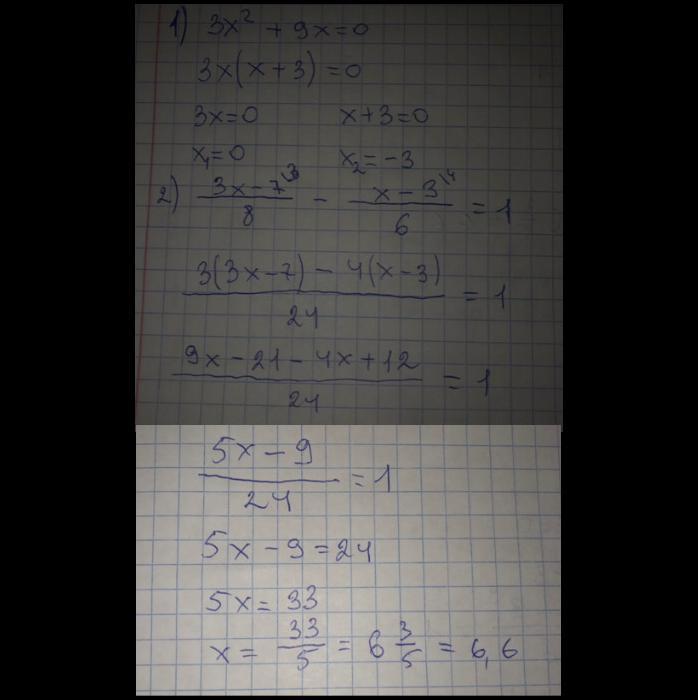 1) 3x² + 9x = 0
3x(x + 3) = 0
3x = 0 x + 3 = 0
x₁ = 0 x₂ = -3
2) (3x - 7)\3 / 8 - (x - 3)\4 / 6 = 1
3(3x - 7) - 4(x - 3) / 24 = 1
9x - 21 - 4x + 12 / 24 = 1
5x - 9 / 24 = 1
5x - 9 = 24
5x = 33
x = 33/5 = 6 3/5 = 6,6